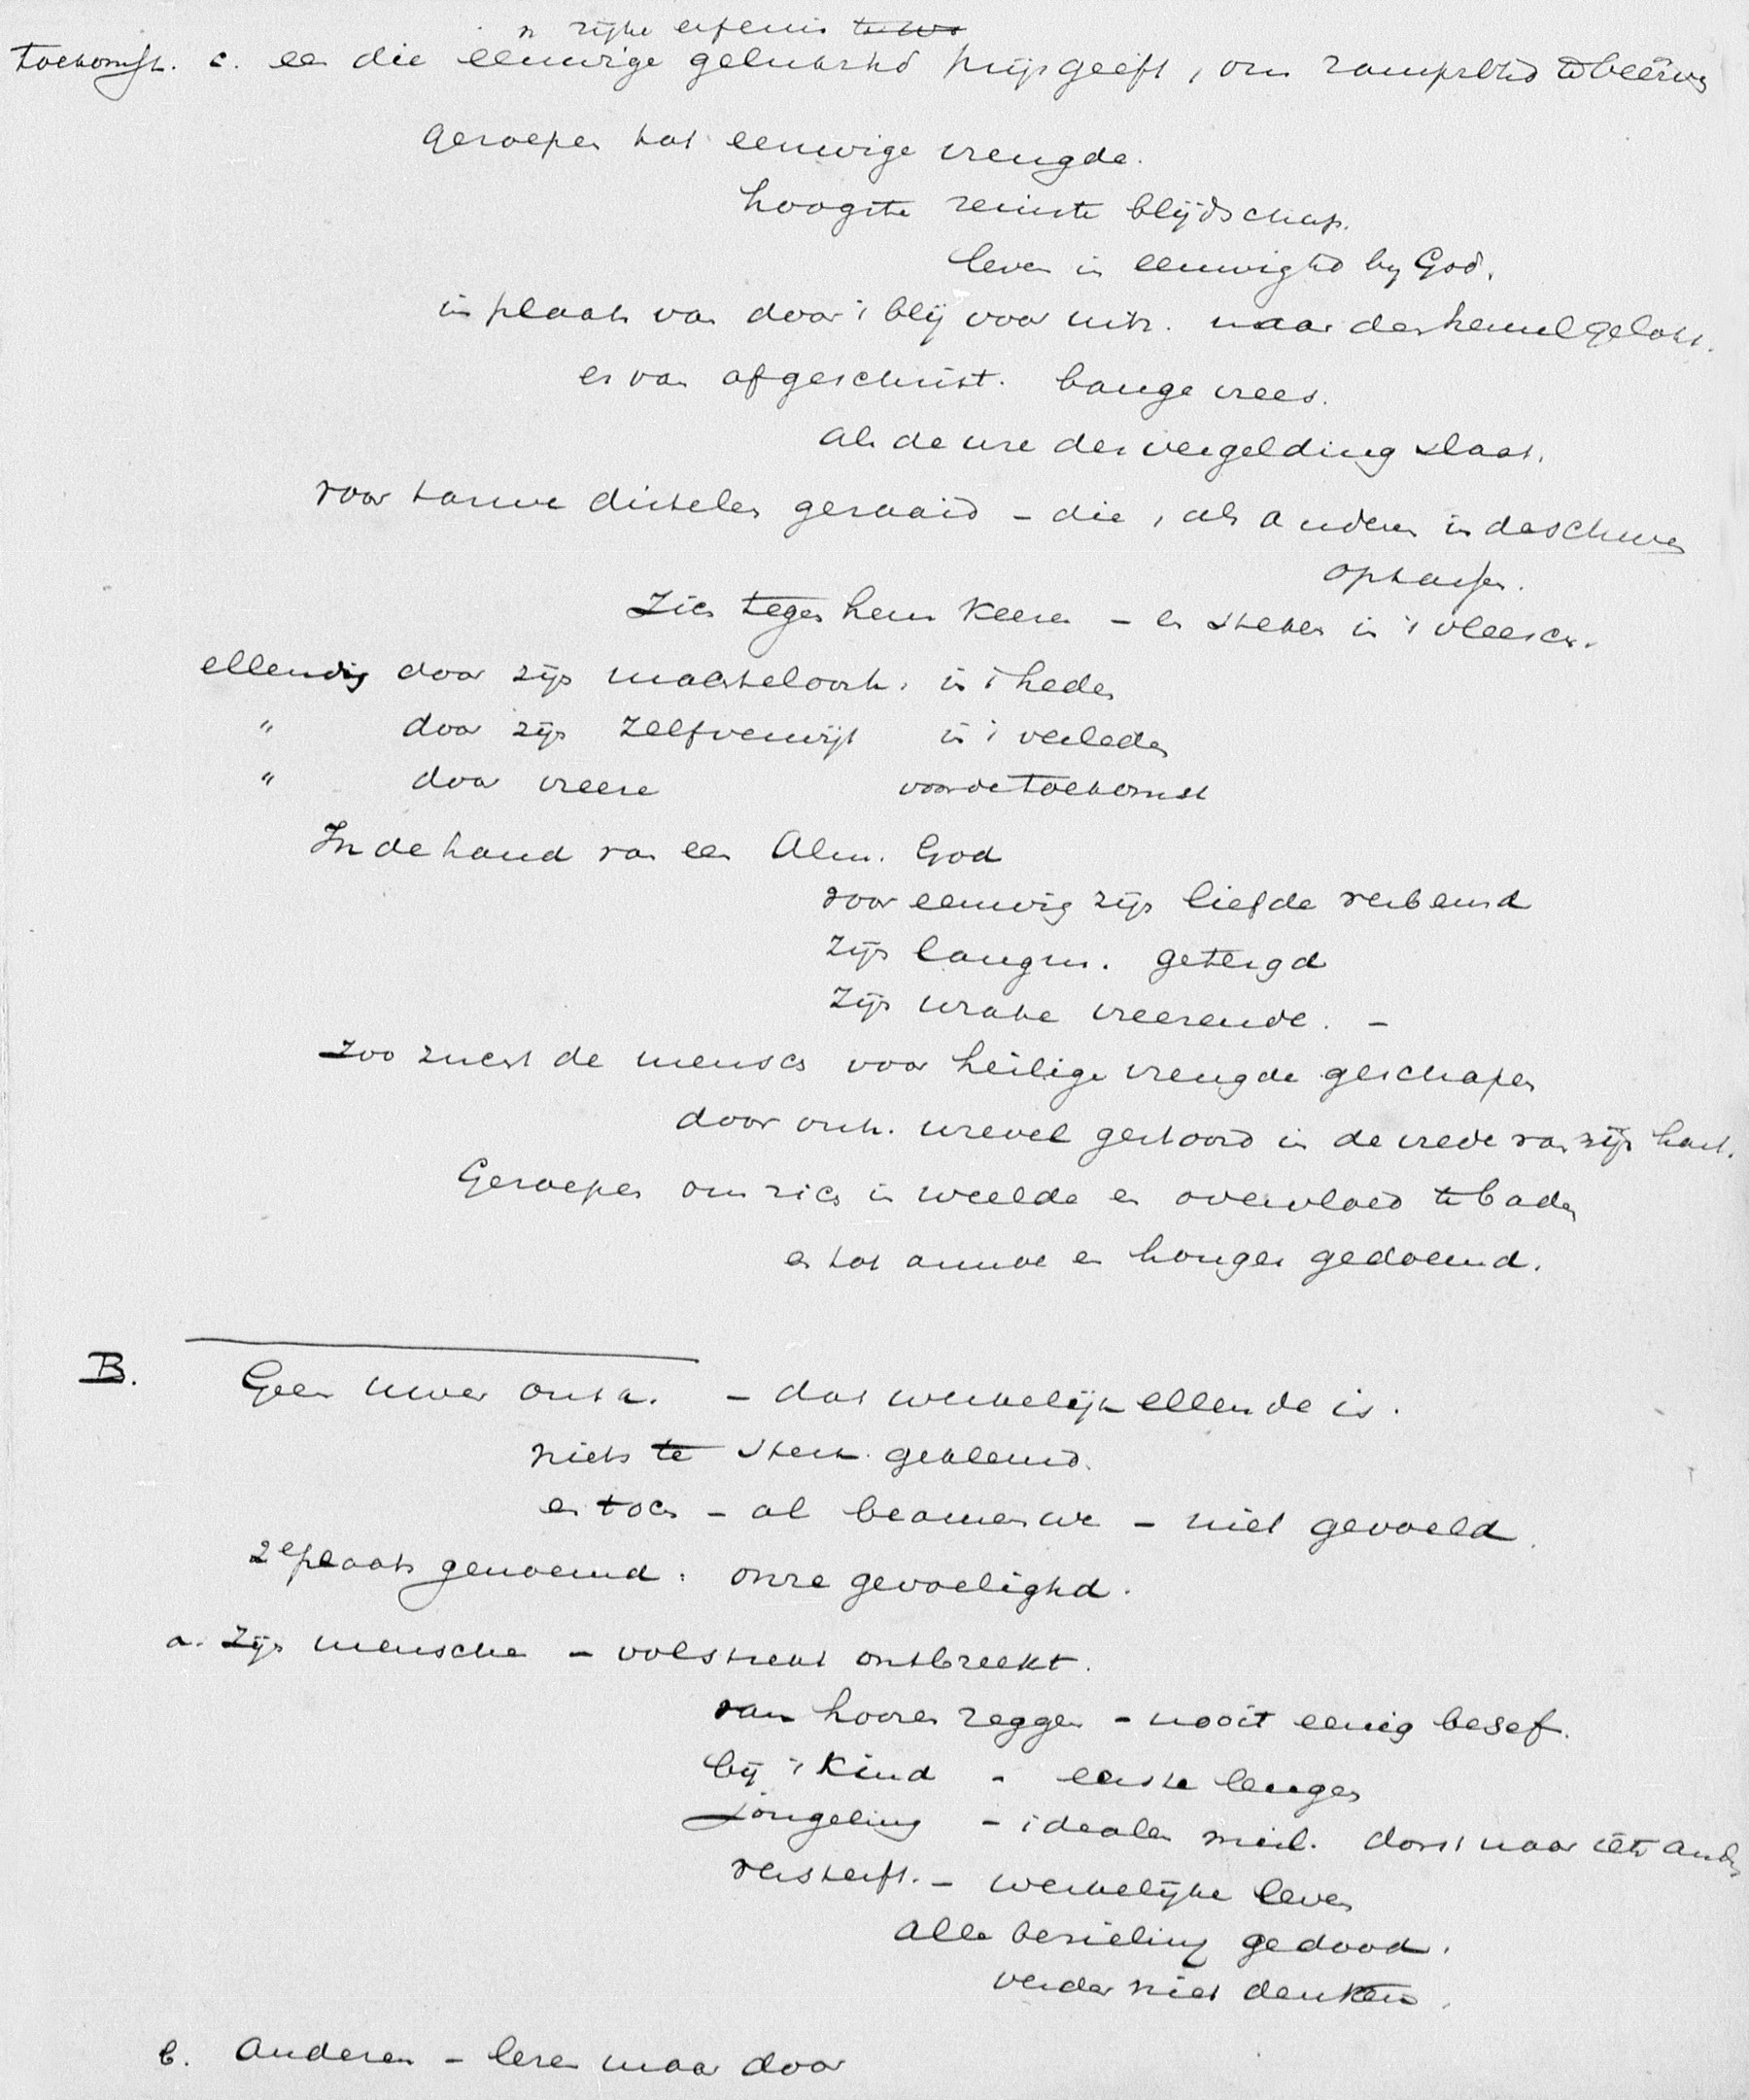 'n rijke erfenis
toekomst. c. een die eeuwige gelukzhd prijsgeeft, om rampzhd te beërven
geroepen tot eeuwige vreugde.
hoogste reinste blijdschap.
leven in eeuwighd by God.
in plaats van door 't blij vooruitz. naar den hemel gelokt.
er van afgeschrikt. bange vrees.
als de ure der vergelding slaat.
voor tarwe distelen gezaaid - die, als anderen in de schuren
optassen.
zich tegen hem keeren - en steken in 't vleesch.
ellendig door zijn machteloosh. in 't heden
" door zijn zelfverwijt in 't verleden
" door vreeze voor de toekomst
In de hand van een Alm. God
voor eeuwig zijn liefde verbeurd
zijn langm. getergd
zijn wrake vreezende. -
zoo zucht de mensch voor heilige vreugde geschapen
door onh. wrevel gestoord in de vrede van zijn hart.
Geroepen om zich in weelde en overvloed te baden
en tot armoe en honger gedoemd.
B. Geen uwer ontk. - dat werkelijk ellende is.
niets te sterk gekleurd.
en toch - al beamen we - niet gevoeld.
2e plaats genoemd: onze gevoelighd.
a. Zijn menschen - volstrekt ontbreekt.
van hooren zeggen - nooit eenig besef.
bij 't Kind - eerste leugen
jongeling - idealen dorst naar iets anders
versterft. - werkelijke leven
alle bezieling gedood.
verder niet denken.
b. Anderen - leven maar door